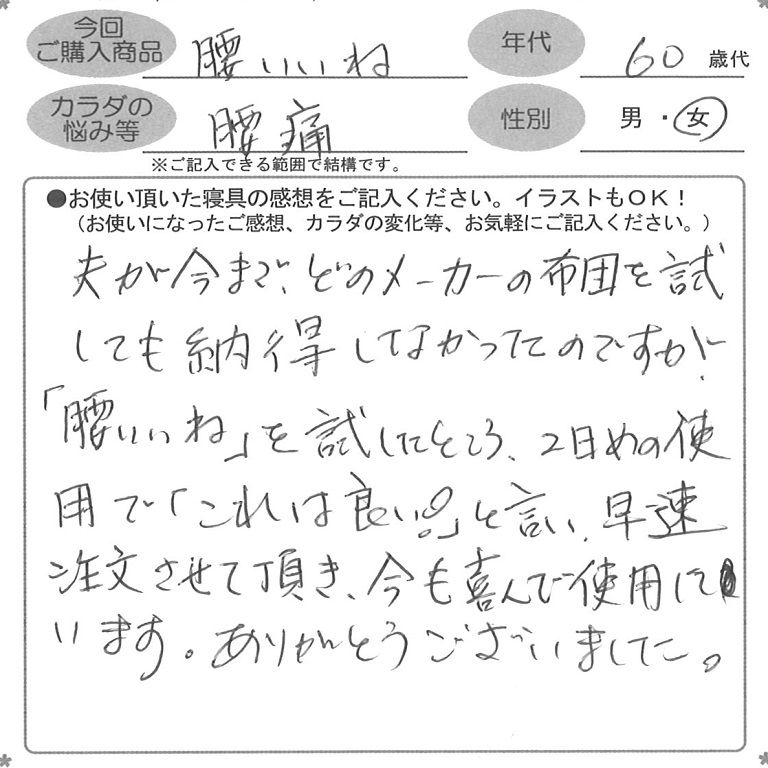 今回
ご購入商品 腰いいね 年代 60 歳代
カラダの
悩み等 腰痛 性別 男・女
※ご記入できる範囲で結構です。
●お使い頂いた寝具の感想をご記入ください。イラストもOK！
（お使いになったご感想、カラダの変化等、お気軽にご記入ください。）
夫が今まで、どのメーカーの布団を試
しても納得しなかったのですが、
「腰いいね」を試したところ、2日めの使
用で「これは良い!」と言い、早速
注文させて頂き、今も喜んで使用して
います。ありがとうございました。